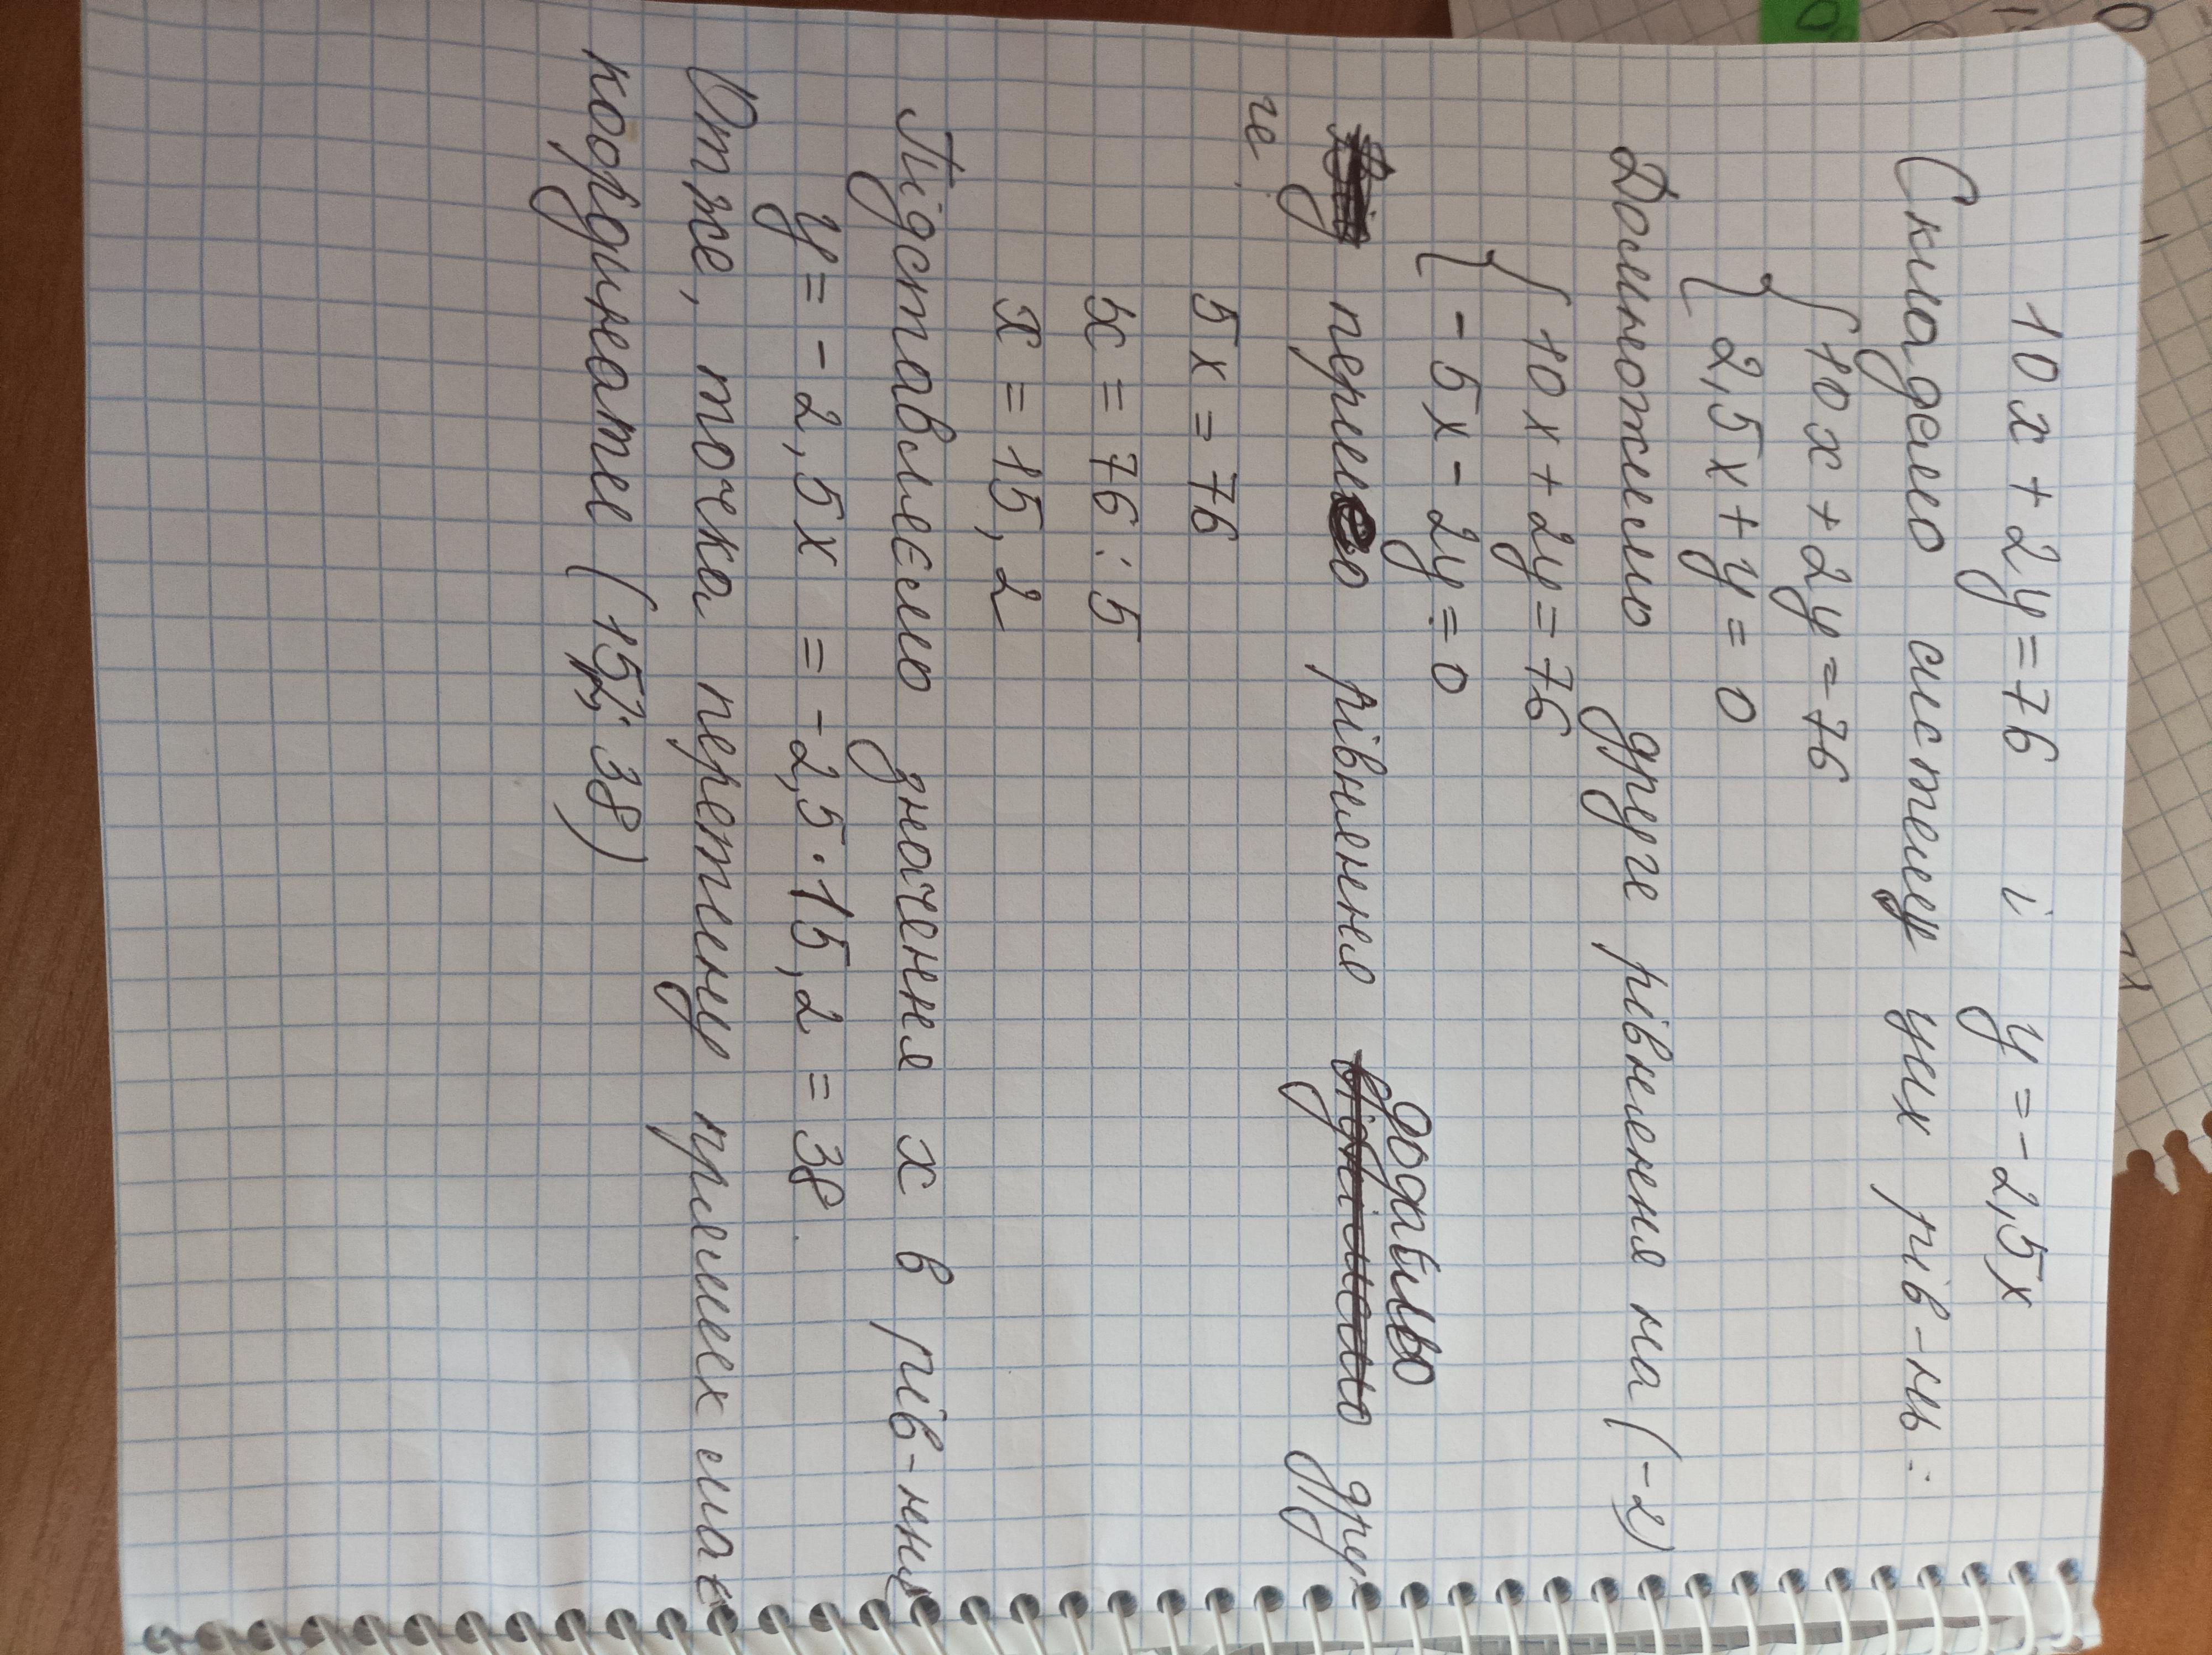 10x + 2y = 76 і y = -2,5x
Складемо систему цих рів-нь:
{ 10x + 2y = 76
{ 2,5x + y = 0
Домножимо друге рівняння на (-2)
{ 10x + 2y = 76
{ -5x - 2y = 0
До першого рівняння додамо дру-
ге:
5x = 76
x = 76 : 5
x = 15,2
Підставляємо значення x в рів-ння
y = -2,5x = -2,5 · 15,2 = 38
Отже, точка перетину прямих має
координати (15,2; 38)